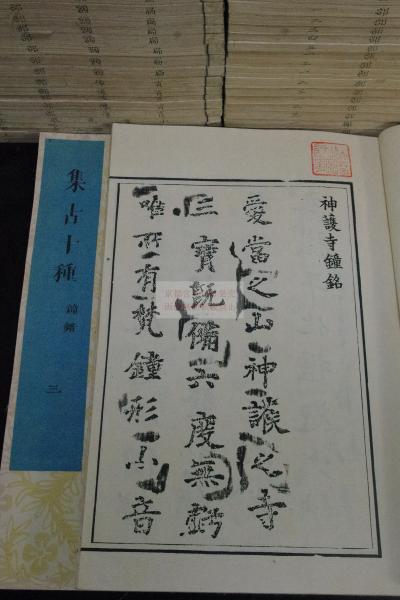 神護寺鐘銘
愛當之山神護之寺
三寶既備六度無虧
唯所有梵鐘形小音
集古十種
鐘銘
三